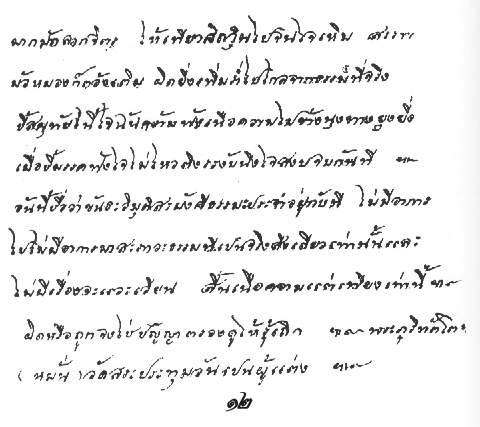 ให้เพียร
ก็ไปไกลจากธรรมที่จริง
ชี้สมุทัยให้ใจฉันคร้ามฟังเนื้อความไปข้างนุงทางยุงยิ่ง
เมื่อชี้มรรคฟังใจไม่ไหวติงระงับนิ่งใจสงบจบกันที ฯ
อันนี้ชื่อว่าขันธะวิมุติสะมังคีธรรมะประจำอยู่กับที่ ไม่มีอาการ
ไปไม่มีอาการมาสะภาวะธรรมที่เป็นจริงสิ่งเดียวเท่านั้นและ
ไม่มีเรื่องจะแวะเวียน สิ้นเนื้อความแต่เพียงเท่านี้ ฯ
ผิดหรือถูกจงใช้ปัญญาตรองดูให้รู้เถิด ฯ พระภูริทัตโต
(หมั่น) วัดสระประทุมวันเปนผู้แต่ง ฯ
๑๒